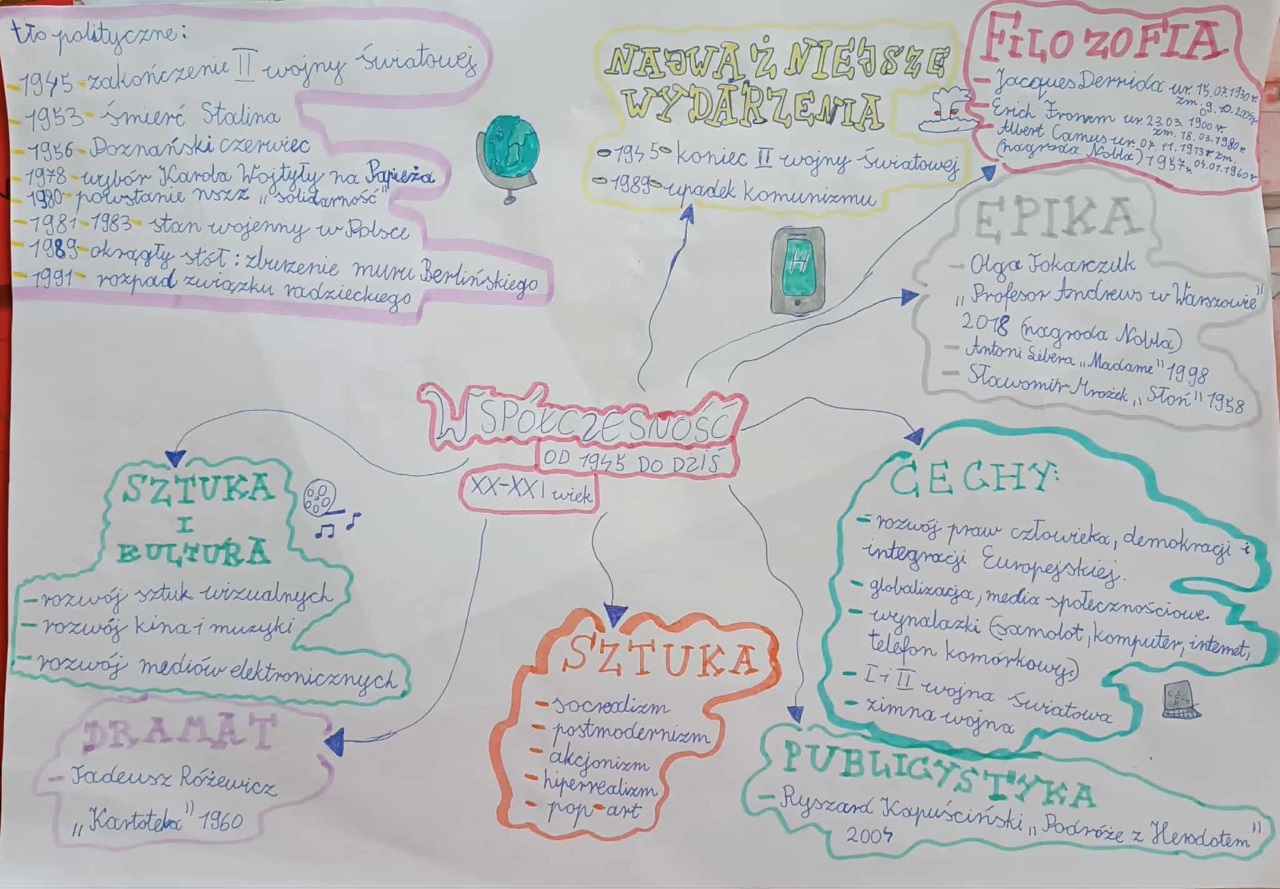 tło polityczne:
1945-zakończenie II wojny światowej
1953-śmierć Stalina
1956-Poznański czerwiec
1978-wybór Karola Wojtyły na Papieża
1980-powstanie nszz „solidarność"
1981-1983-stan wojenny w Polsce
1989-okrągły stół: zburzenie muru Berlińskiego
1991-rozpad związku radzieckiego
NAJWAŻNIEJSZE
WYDARZENIA
-1945-koniec II wojny światowej
-1989-upadek komunizmu
FILOZOFIA
-Jacques Derrida ur. 15.07.1930r.
zm. 9.10.2004r.
-Erich Fromm ur. 23.03.1900r.
zm. 18.03.1980r.
-Albert Camus ur. 07.11.1913r zm.
(nagroda Nobla) 1957r. 04.01.1960r.
EPIKA
-Olga Tokarczuk
„Profesor Andrews w Warszawie"
2018 (nagroda Nobla)
-Antoni Libera „Madame" 1998
-Sławomir Mrożek „Słoń" 1958
H
WSPÓŁCZESNOŚĆ
OD 1945 DO DZIŚ
XX-XXI wiek
SZTUKA
I
KULTURA
-rozwój sztuk wizualnych
-rozwój kina i muzyki
-rozwój mediów elektronicznych
DRAMAT
-Tadeusz Różewicz
„Kartoteka" 1960
SZTUKA
-socrealizm
-postmodernizm
-akcjonizm
-hiperrealizm
-pop-art
CECHY:
-rozwój praw człowieka, demokracji i
integracji Europejskiej.
-globalizacja, media społecznościowe.
-wynalazki (samolot, komputer, internet,
telefon komórkowy.)
-I i II wojna światowa
-zimna wojna
PUBLICYSTYKA
-Ryszard Kapuściński „Podróże z Herodotem"
2004